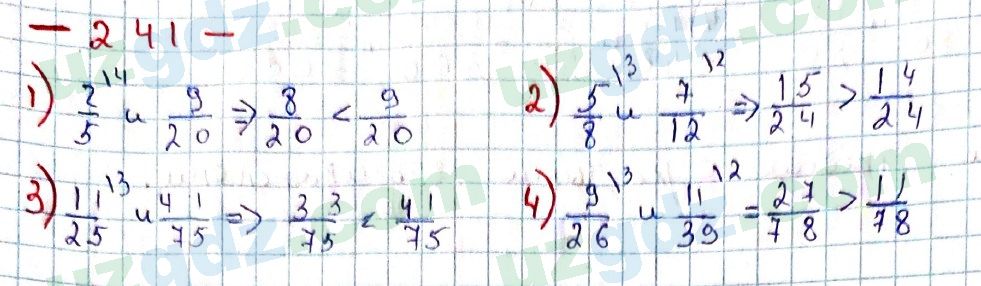 — 241 —
1) 2/5 \4 и 9/20 => 8/20 < 9/20
2) 5/8 \3 и 7/12 \2 => 15/24 > 14/24
3) 11/25 \3 и 41/75 => 33/75 < 41/75
4) 9/26 \3 и 11/39 \2 = 27/78 > 11/78
uzgdz.com